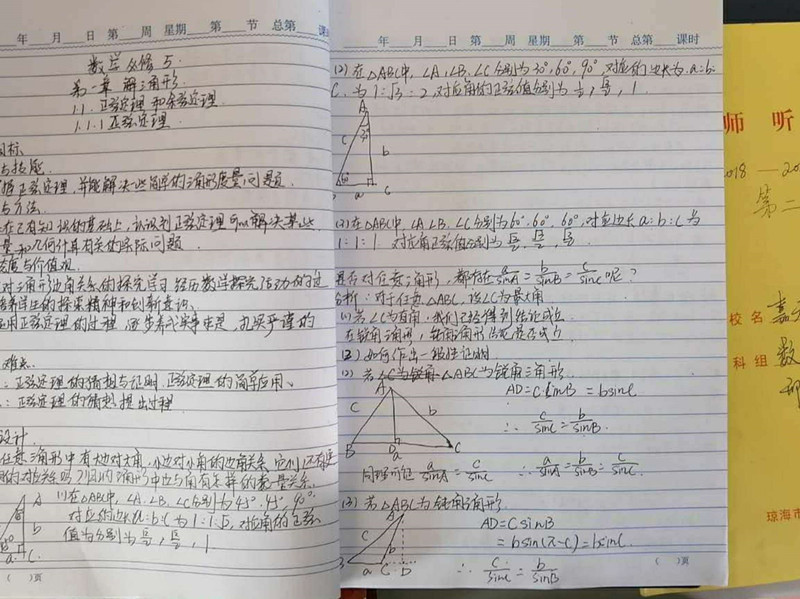 年 月 日 第 周 星期 第 节 总第 课
数学必修5
第一章 解三角形
1.1 正弦定理和余弦定理
1.1.1 正弦定理
目标
与技能
握正弦定理,并能解决一些简单的三角形度量问题
与方法
在已有知识的基础上,认识到正弦定理可以解决某些
量和几何计算有关的实际问题
态度与价值观
对三角形边角关系的探究学习,经历数学探究活动的过
培养学生的探索精神和创新意识
用正弦定理的过程
扎实严谨的
难点
:正弦定理的猜想与证明,正弦定理的简单应用。
:正弦定理的猜想提出过程
设计
任意三角形中有大边对大角,小边对小角的边角关系
的对应关系吗?
三角形中边与角有怎样的数量关系
(1)在△ABC中,∠A,∠B,∠C分别为45°,45°,90°.
对应的边长a:b:c为1:1:√2,对应角的正弦
值分别为√2/2,√2/2,1
A
b
a C
( )页
年 月 日 第 周 星期 第 节 总第 课时
(2)在△ABC中,∠A,∠B,∠C分别为30°,60°,90°,对应的边长为a:b:
c,为1:√3:2,对应角的正弦值分别为1/2,√3/2,1
A
c
b
a C
(2)在△ABC中,∠A,∠B,∠C分别为60°,60°,60°,对应边长a:b:c为
1:1:1 对应角正弦值分别为√3/2,√3/2,√3/2
是否对任意三角形,都存在a/sinA=b/sinB=c/sinC呢?
分析:对于任意△ABC,设∠C为最大角
(1)若∠C为直角,我们已经得到结论成立
在锐角三角形,钝角三角形
(2)如何作出一般性证明
(2)若△ABC为锐角三角形
AD=c·sinB=bsinC
∴c/sinC=b/sinB.
A
c b
B D C
a
同理可证a/sinA=c/sinC ∴a/sinA=b/sinB=c/sinC
(3)若△ABC为钝角三角形
AD=csinB
=bsin(π-C)=bsinC.
∴c/sinC=b/sinB
A
c b
B a C D
( )页
师 听
018—20
第二
校名
科组 数
琼海市